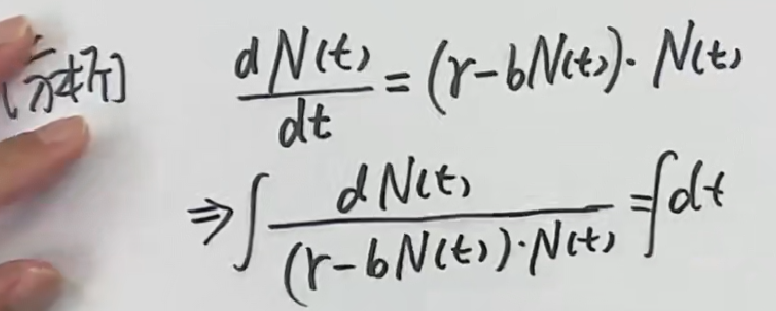 [求解] dN(t)/dt = (r-bN(t))·N(t)
⇒∫ dN(t)/((r-bN(t))·N(t)) = ∫dt